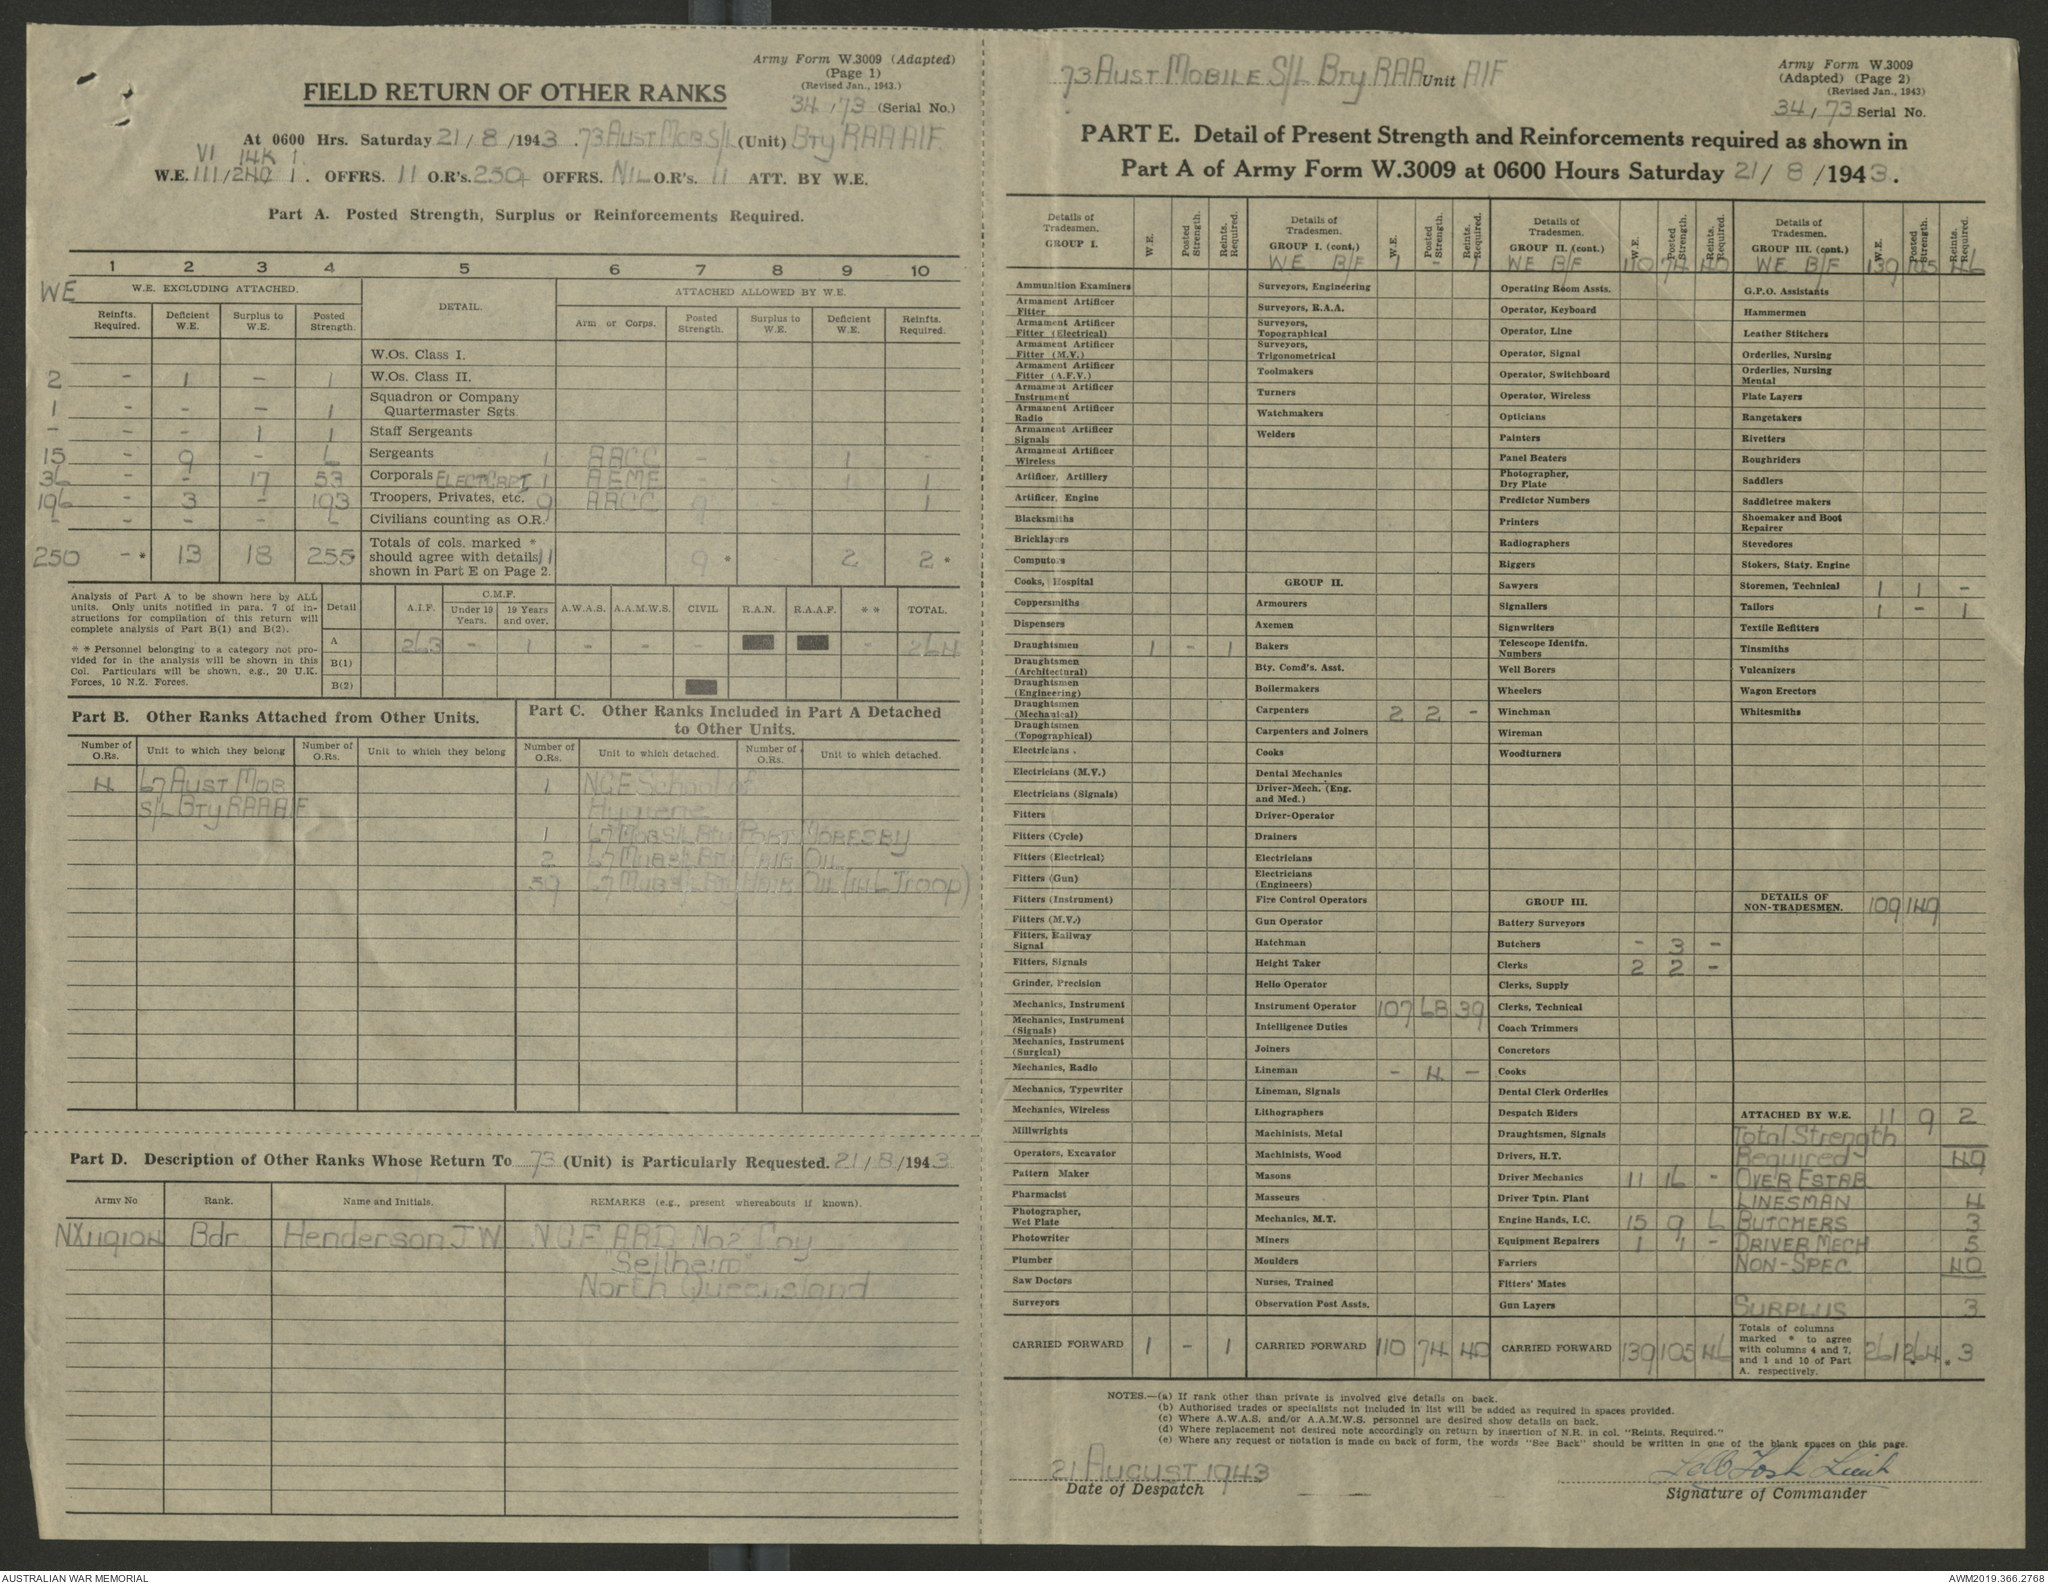 Army Form W.3009 (Adapted)
(Page 1)
(Revised Jan., 1943.)
34/73 (Serial No.)
FIELD RETURN OF OTHER RANKS
At 0600 Hrs. Saturday 21/8/1943. 73 AUST MOB S/L (Unit) BTY RAA AIF.
VI 14K 1.
W.E. 111/2HQ 1. OFFRS. 11 O.R's. 250+ OFFRS. NIL O.R's. 11 ATT. BY W.E.
Part A. Posted Strength, Surplus or Reinforcements Required.
1 2 3 4 5 6 7 8 9 10
WE W.E. EXCLUDING ATTACHED. DETAIL. ATTACHED ALLOWED BY W.E.
Reinfts. Required. Deficient W.E. Surplus to W.E. Posted Strength. Arm or Corps. Posted Strength. Surplus to W.E. Deficient W.E. Reinfts. Required.
W.Os. Class I.
2 - 1 - 1 W.Os. Class II.
1 - - - 1 Squadron or Company Quartermaster Sgts.
- - - 1 1 Staff Sergeants
15 - 9 - 6 Sergeants 1 AACC - - 1 -
36 - - 17 53 Corporals ELECT CRPT 1 AEME - - 1 1
196 - 3 - 193 Troopers, Privates, etc. 9 AACC 9 - - 1
- - - - L Civilians counting as O.R.
250 - * 13 18 255* Totals of cols. marked * should agree with details 11 shown in Part E on Page 2. 9 * 2 2 *
Analysis of Part A to be shown here by ALL units. Only units notified in para. 7 of instructions for compilation of this return will complete analysis of Part B(1) and B(2).
* * Personnel belonging to a category not provided for in the analysis will be shown in this Col. Particulars will be shown, e.g., 20 U.K. Forces, 10 N.Z. Forces.
Detail A.I.F. C.M.F. Under 19 Years. 19 Years and over. A.W.A.S. A.A.M.W.S. CIVIL R.A.N. R.A.A.F. * * TOTAL.
A 263 - 1 - - - - 264
B(1)
B(2)
Part B. Other Ranks Attached from Other Units.
Number of O.Rs. Unit to which they belong Number of O.Rs. Unit to which they belong
4 67 AUST MOB
S/L BTY RAA AIF
Part C. Other Ranks Included in Part A Detached to Other Units.
Number of O.Rs. Unit to which detached. Number of O.Rs. Unit to which detached.
1 NGF School of
Hygiene
1 67 MOB S/L BTY PORT MORESBY
2 67 MOB S/L BTY FAIR OIL
59 67 MOB S/L BTY FAIR OIL (44L Troop)
Part D. Description of Other Ranks Whose Return To 73 (Unit) is Particularly Requested. 21/8/1943
Army No Rank. Name and Initials. REMARKS (e.g., present whereabouts if known).
NX119104 Bdr Henderson J W NGF ARD No2 Coy
"Sellheim"
North Queensland
73 AUST MOBILE S/L BTY RAA Unit AIF
Army Form W.3009
(Adapted) (Page 2)
(Revised Jan., 1943)
34/73 Serial No.
PART E. Detail of Present Strength and Reinforcements required as shown in
Part A of Army Form W.3009 at 0600 Hours Saturday 21/8/1943.
Details of Tradesmen. GROUP I. W.E. Posted Strength. Reints. Required.
Ammunition Examiners
Armament Artificer Fitter
Armament Artificer Fitter (Electrical)
Armament Artificer Fitter (M.V.)
Armament Artificer Fitter (A.F.V.)
Armament Artificer Instrument
Armament Artificer Radio
Armament Artificer Signals
Armament Artificer Wireless
Artificer, Artillery
Artificer, Engine
Blacksmiths
Bricklayers
Computors
Cooks, Hospital
Coppersmiths
Dispensers
Draughtsmen 1 - 1
Draughtsmen (Architectural)
Draughtsmen (Engineering)
Draughtsmen (Mechanical)
Draughtsmen (Topographical)
Electricians
Electricians (M.V.)
Electricians (Signals)
Fitters
Fitters (Cycle)
Fitters (Electrical)
Fitters (Gun)
Fitters (Instrument)
Fitters (M.V.)
Fitters, Railway Signal
Fitters, Signals
Grinder, Precision
Mechanics, Instrument
Mechanics, Instrument (Signals)
Mechanics, Instrument (Surgical)
Mechanics, Radio
Mechanics, Typewriter
Mechanics, Wireless
Millwrights
Operators, Excavator
Pattern Maker
Pharmacist
Photographer, Wet Plate
Photowriter
Plumber
Saw Doctors
Surveyors
CARRIED FORWARD 1 - 1
Details of Tradesmen. GROUP I. (cont.) W.E. Posted Strength. Reints. Required.
WE B/F 1 - 1
Surveyors, Engineering
Surveyors, R.A.A.
Surveyors, Topographical
Surveyors, Trigonometrical
Toolmakers
Turners
Watchmakers
Welders
GROUP II.
Armourers
Axemen
Bakers
Bty. Comd's. Asst.
Boilermakers
Carpenters 2 2 -
Carpenters and Joiners
Cooks
Dental Mechanics
Driver-Mech. (Eng. and Med.)
Driver-Operator
Drainers
Electricians
Electricians (Engineers)
Fire Control Operators
Gun Operator
Hatchman
Height Taker
Helio Operator
Instrument Operator 107 68 39
Intelligence Duties
Joiners
Lineman - 4 -
Lineman, Signals
Lithographers
Machinists, Metal
Machinists, Wood
Masons
Masseurs
Mechanics, M.T.
Miners
Moulders
Nurses, Trained
Observation Post Assts.
CARRIED FORWARD 110 74 40
Details of Tradesmen. GROUP II. (cont.) W.E. Posted Strength. Reints. Required.
WE B/F 110 74 40
Operating Room Assts.
Operator, Keyboard
Operator, Line
Operator, Signal
Operator, Switchboard
Operator, Wireless
Opticians
Painters
Panel Beaters
Photographer, Dry Plate
Predictor Numbers
Printers
Radiographers
Riggers
Sawyers
Signallers
Signwriters
Telescope Identfn. Numbers
Well Borers
Wheelers
Winchman
Wireman
Woodturners
GROUP III.
Battery Surveyors
Butchers - 3 -
Clerks 2 2 -
Clerks, Supply
Clerks, Technical
Coach Trimmers
Concretors
Cooks
Dental Clerk Orderlies
Despatch Riders
Draughtsmen, Signals
Drivers, H.T.
Driver Mechanics 11 16 -
Driver Tptn. Plant
Engine Hands, I.C. 15 9 6
Equipment Repairers 1 1 -
Farriers
Fitters' Mates
Gun Layers
CARRIED FORWARD 139 105 46
Details of Tradesmen. GROUP III. (cont.) W.E. Posted Strength. Reints. Required.
WE B/F 139 105 46
G.P.O. Assistants
Hammermen
Leather Stitchers
Orderlies, Nursing
Orderlies, Nursing Mental
Plate Layers
Rangetakers
Rivetters
Roughriders
Saddlers
Saddletree makers
Shoemaker and Boot Repairer
Stevedores
Stokers, Staty. Engine
Storemen, Technical 1 1 -
Tailors 1 - 1
Textile Refitters
Tinsmiths
Vulcanizers
Wagon Erectors
Whitesmiths
DETAILS OF NON-TRADESMEN. 109 149
ATTACHED BY W.E. 11 9 2
Total Strength
Required 49
OVER ESTAB
LINESMAN 4
BUTCHERS 3
DRIVER MECH 5
NON-SPEC 40
SURPLUS 3
Totals of columns marked * to agree with columns 4 and 7, and 1 and 10 of Part A. respectively. 261 264 . 3
NOTES.—(a) If rank other than private is involved give details on back.
(b) Authorised trades or specialists not included in list will be added as required in spaces provided.
(c) Where A.W.A.S. and/or A.A.M.W.S. personnel are desired show details on back.
(d) Where replacement not desired note accordingly on return by insertion of N.R. in col. "Reints, Required."
(e) Where any request or notation is made on back of form, the words "See Back" should be written in one of the blank spaces on this page.
21 AUGUST 1943
Date of Despatch
Tosh Lieut
Signature of Commander
AUSTRALIAN WAR MEMORIAL
AWM2019.366.2768